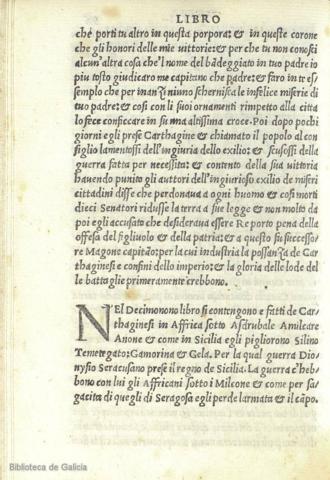 LIBRO
ché porti tu altro in questa porpora: & in queste corone
che gli honori delle mie vittorie: & per che tu non conosci
alcun'altra cosa che'l nome del badeggiato in tuo padre io
piu tosto giudicaro me capitano che padre: & faro in te es/
sempio che per inanzi niuno schernisca le infelice miserie di
tuo padre: & cosi con li suoi ornamenti rimpetto alla citta
lo fece conficcare in su una altissima croce. Poi dopo pochi
giorni egli prese Carthagine & chiamato il popolo al con
siglio lamentossi dell'ingiuria dello exilio: & scusossi della
guerra fatta per necessita: & contento della sua vittoria
havendo punito gli auttori dell'ingiurioso exilio de miseri
cittadini disse che perdonava a ogni huomo & cosi morti
dieci Senatori ridusse la terra a sue legge & non molto da
poi egli accusato che desiderava essere Re porto pena della
offesa del figliuolo & della patria: & a questo su successo/
re Magone capitão: per la cui industria la possanza de Car
thaginesi & confini dello imperio: & la gloria delle lode del
le battaglie primeramente crebbono.
NEl Decimonono libro si contengono e fatti de Car
thaginesi in Affrica sotto Asdrubale Amilcare
Anone & come in Sicilia egli pigliorono Silino
Temergato: Camorina & Gela. Per la qual guerra Dio
nysio Seracusano prese il regno de Sicilia. La guerra c'heb
bono con lui gli Affricani sotto i Milcone & come per sa/
gacita di quegli di Seragosa egli perde larmata & il cãpo.
Biblioteca de Galicia